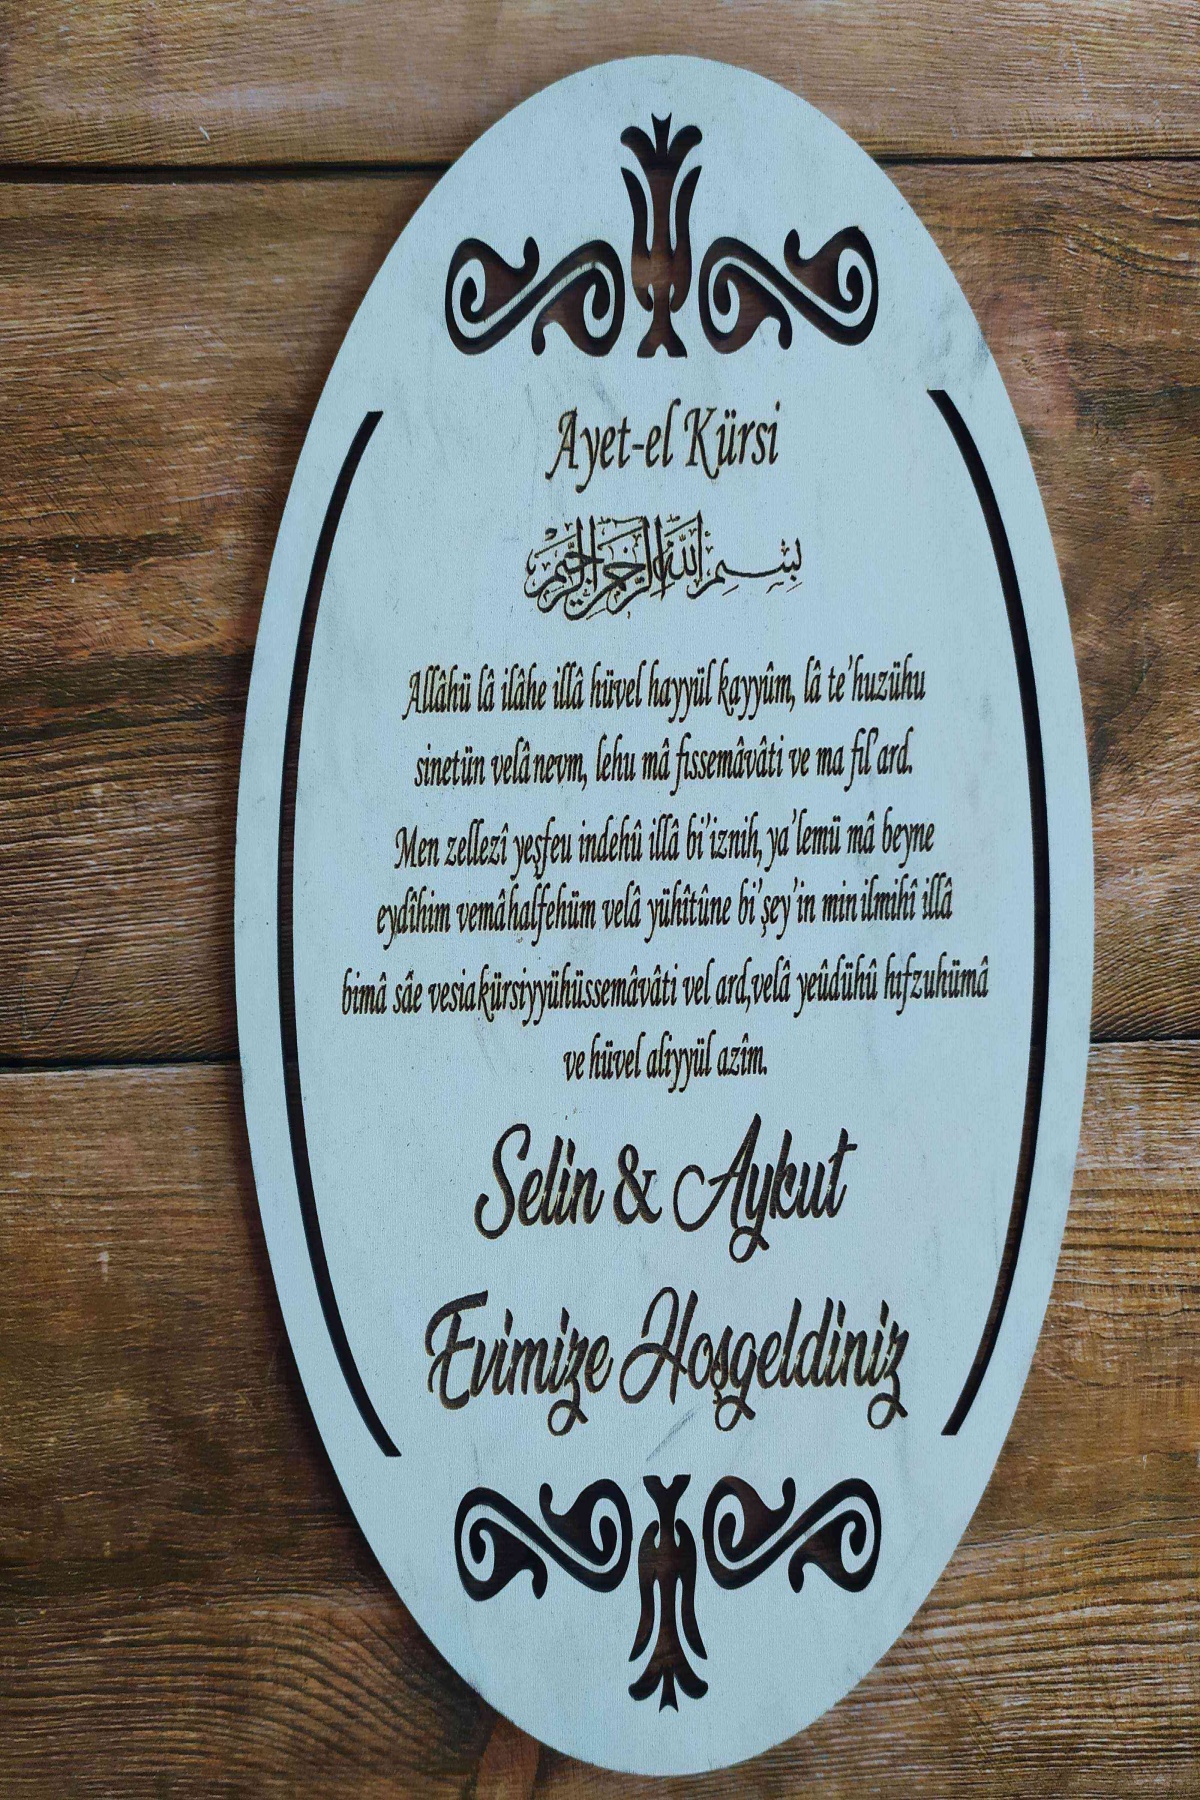 Ayet-el Kürsi
بِسْمِ اللهِ الرَّحْمٰنِ الرَّحِيمِ
Allâhü lâ ilâhe illâ hüvel hayyül kayyûm, lâ te'huzühu
sinetün velâ nevm, lehu mâ fissemâvâti ve ma fil'ard.
Men zellezî yeşfeu indehû illâ bi'iznih, ya'lemü mâ beyne
eydîhim vemâ halfehüm velâ yühîtûne bi'şey'in min ilmihî illâ
bimâ sâe vesia kürsiyyühüssemâvâti vel ard,velâ yeûdühû hıfzuhümâ
ve hüvel aliyyül azîm.
Selin & Aykut
Evimize Hoşgeldiniz